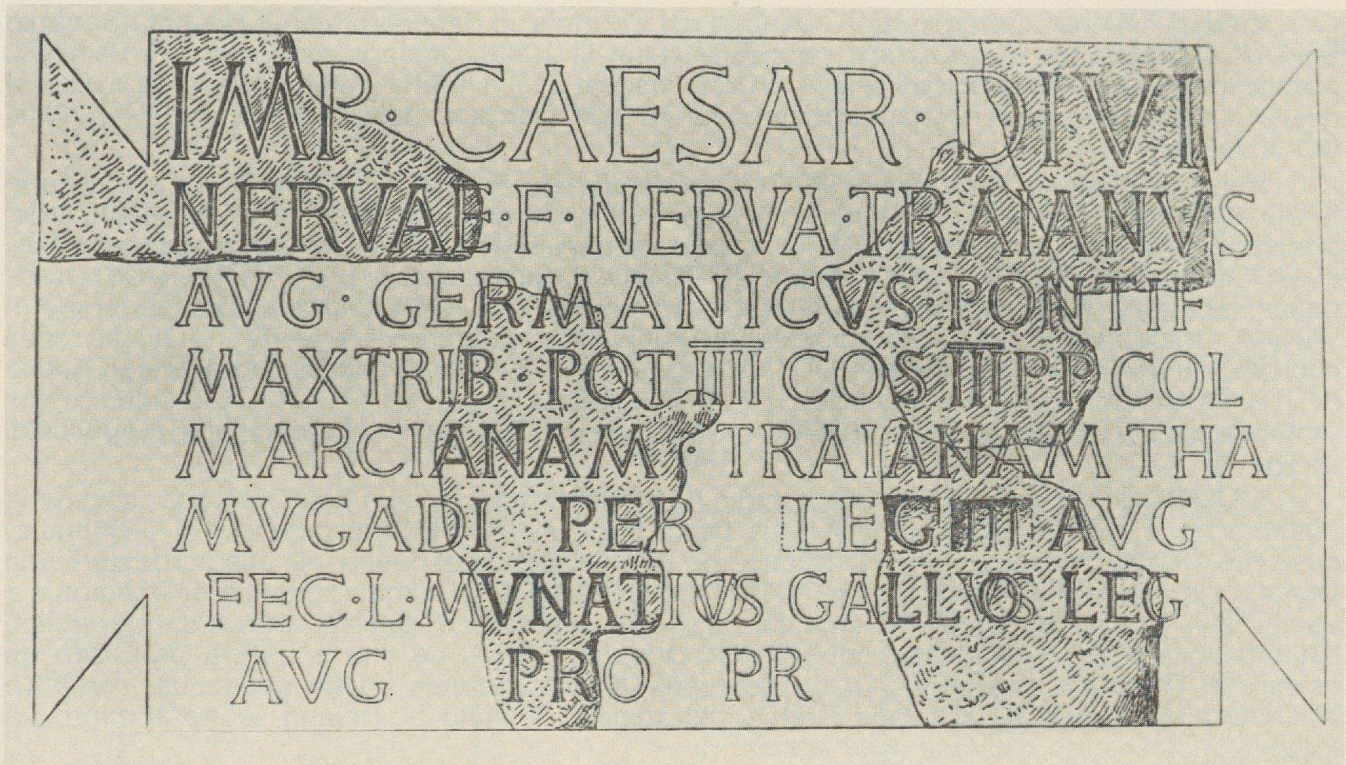 IMP · CAESAR · DIVI
NERVAE · F · NERVA · TRAIANVS
AVG · GERMANICVS · PONTIF
MAX TRIB · POT IIII COS III PP COL
MARCIANAM · TRAIANAM THA
MVGADI PER LEG III AVG
FEC · L · MVNATIVS GALLVS LEG
AVG PRO PR